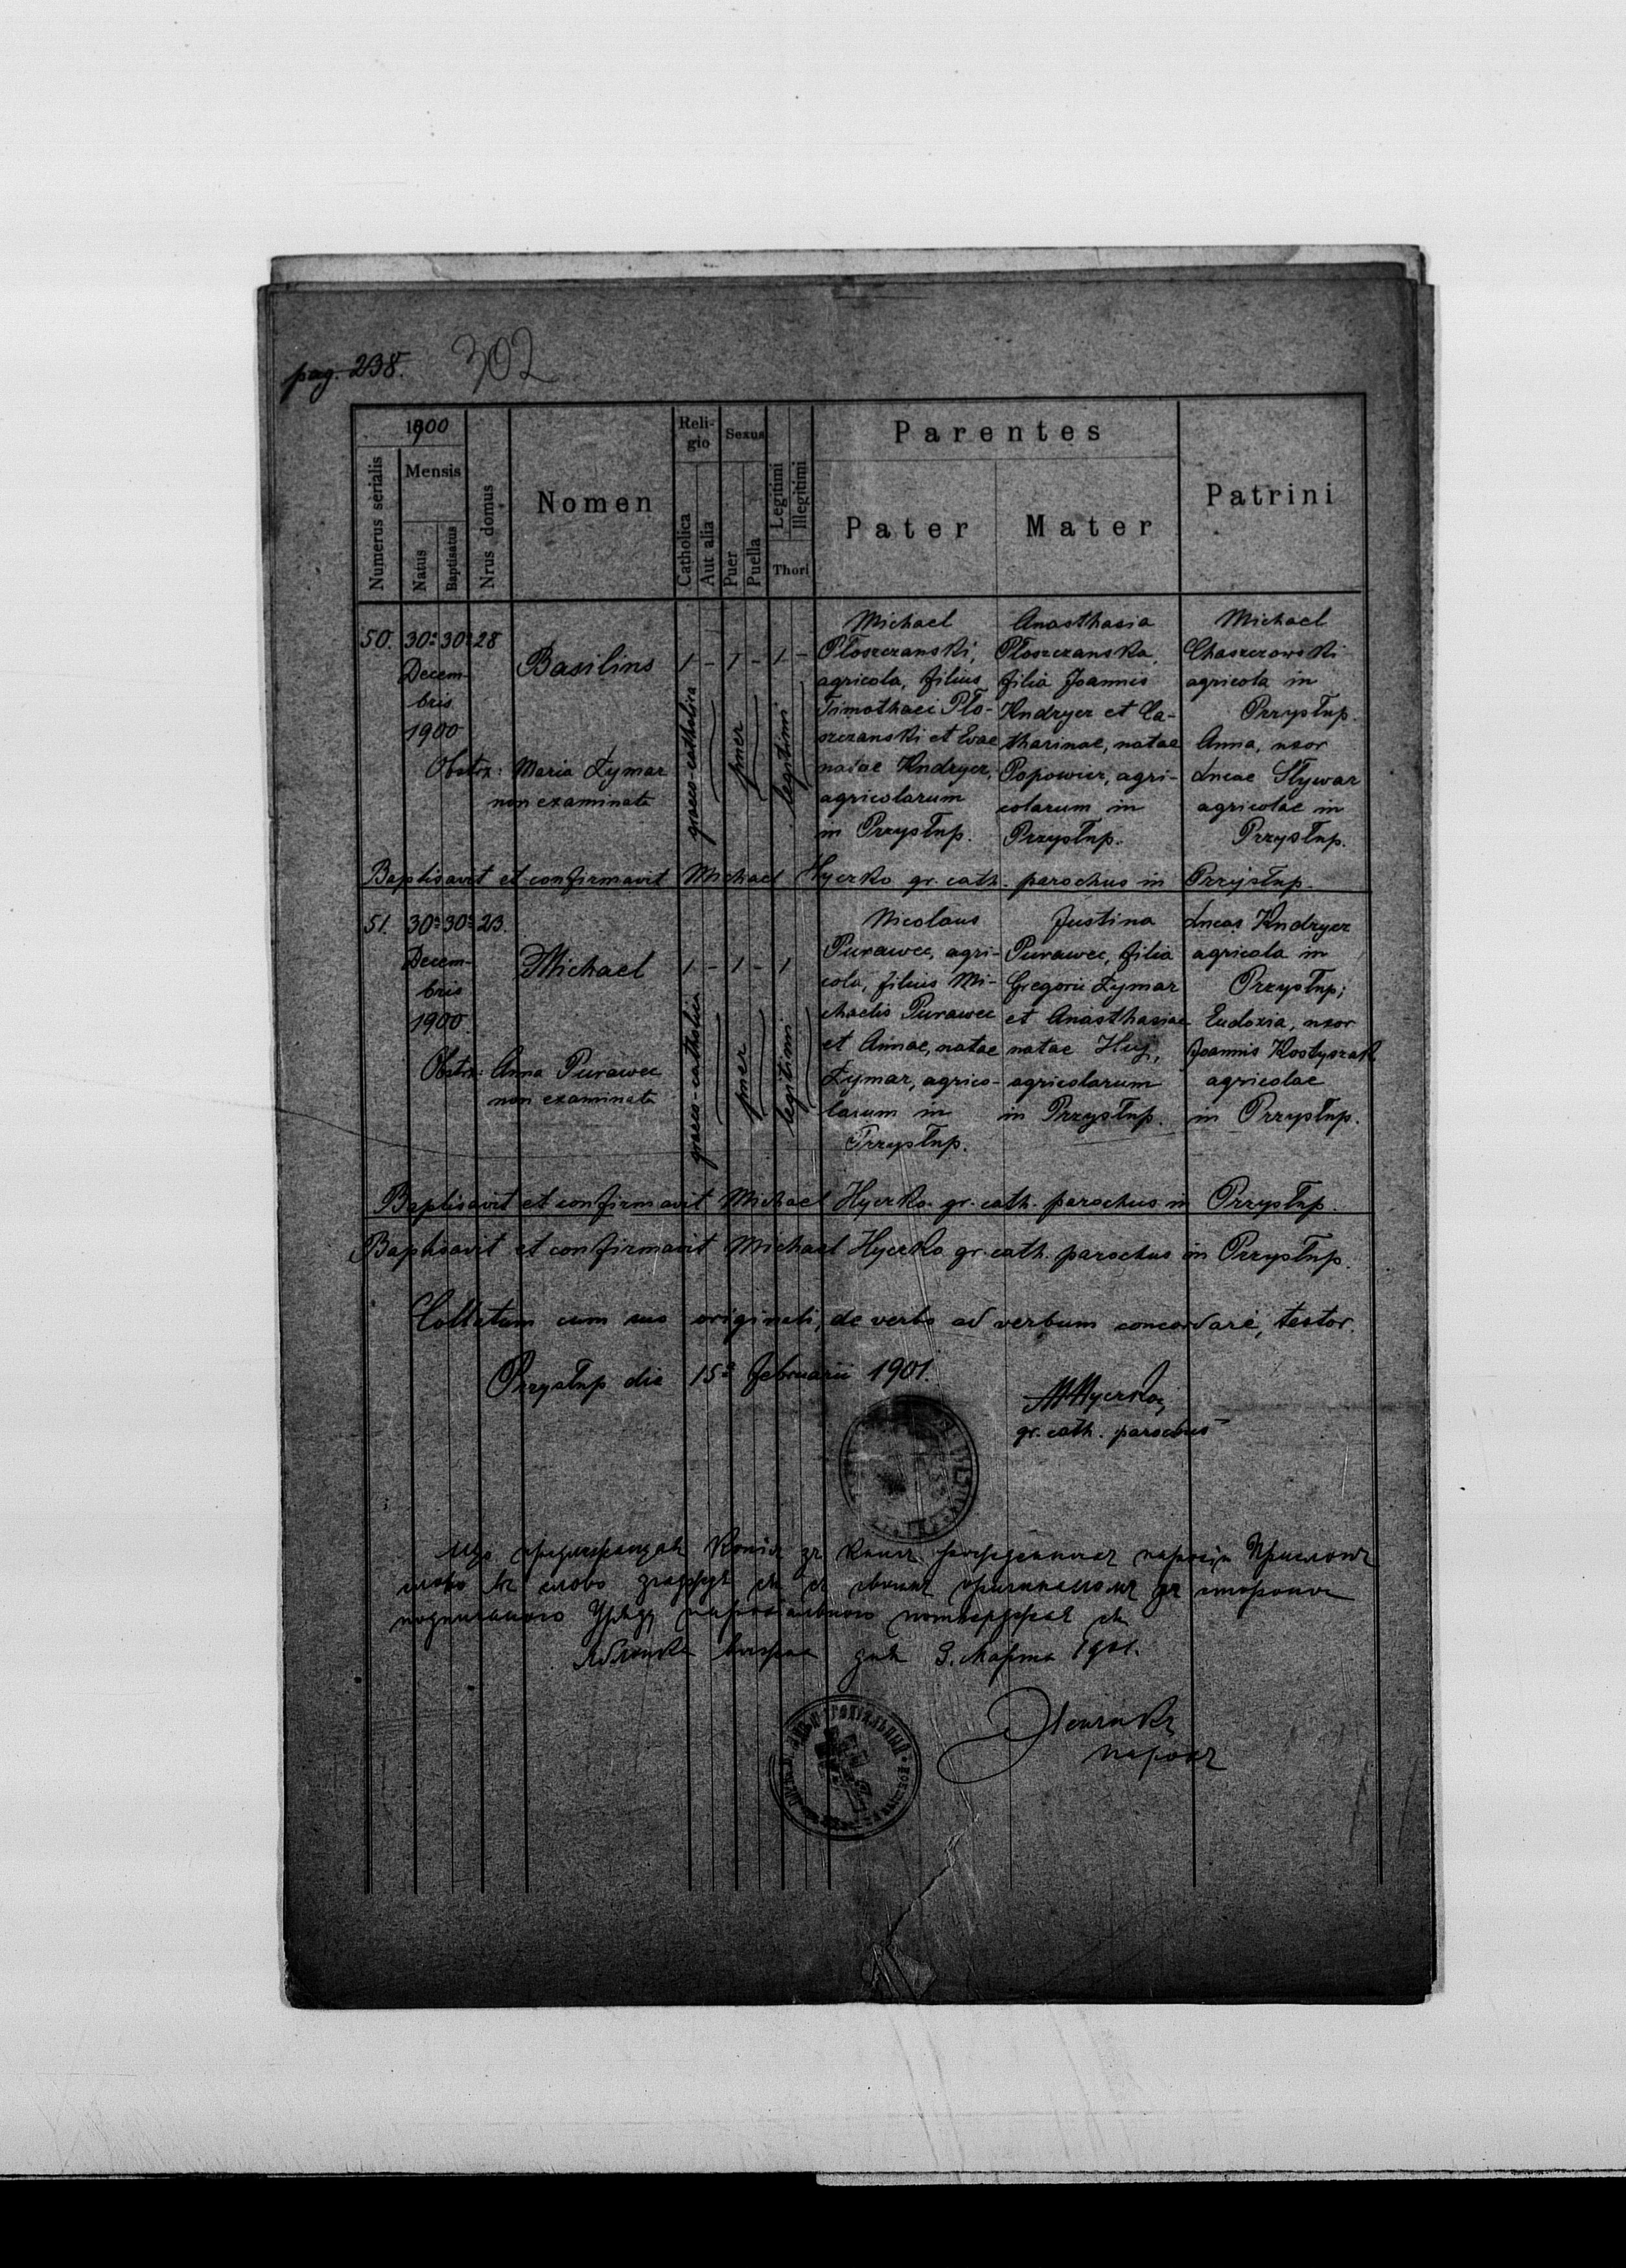 pag. 238. 302
1900
Reli-
gio
Sexus
Parentes
Mensis
Numerus serialis
Natus
Baptisatus
Nrus domus
Nomen
Catholica
Aut alia
Puer
Puella
Legitimi
Illegitimi
Thori
Pater
Mater
Patrini
50. 30a 30a 28
Decem-
bris
1900
Basilius
1 - 1 - 1 -
graeco-catholica
puer
legitimi
Obstx: Maria Żymar
non examinata
Michael
Płoszczanski,
agricola, filius
Timothaei Pło-
szczanski et Evae
natae Kudryez,
agricolarum
in Przysłup.
Anasthasia
Płoszczanska,
filia Joannis
Kudryez et Ca-
tharinae, natae
Popowicz, agri-
colarum in
Przysłup.
Michael
Chaszczowski
agricola in
Przysłup.
Anna, uxor
Lucae Sływar
agricolae in
Przysłup.
Baptisavit et confirmavit Michael Hyczko gr. cath. parochus in Przysłup.
51. 30a 30a 23.
Decem-
bris
1900.
Michael
1 - 1 - 1
graeco-catholica
puer
legitimi
Obstx: Anna Purawec
non examinata
Nicolaus
Purawec, agri-
cola, filius Mi-
chaelis Purawec
et Annae, natae
Żymar, agrico-
larum in
Przysłup.
Justina
Purawec, filia
Gregorii Żymar
et Anasthasiae
natae Huj,
agricolarum
in Przysłup.
Lucas Kudryez
agricola in
Przysłup;
Eudoxia, uxor
Joannis Kostyszak
agricolae
in Przysłup.
Baptisavit et confirmavit Michael Hyczko gr. cath. parochus in Przysłup.
Baptisavit et confirmavit Michael Hyczko gr. cath. parochus in Przysłup.
Collatum cum suo originali, de verbo ad verbum concordare, testor.
Przysłup die 15a Februarii 1901.
MHyczko,
gr. cath. parochus
слово въ слово
дня 3. Марта 1901.
парохъ